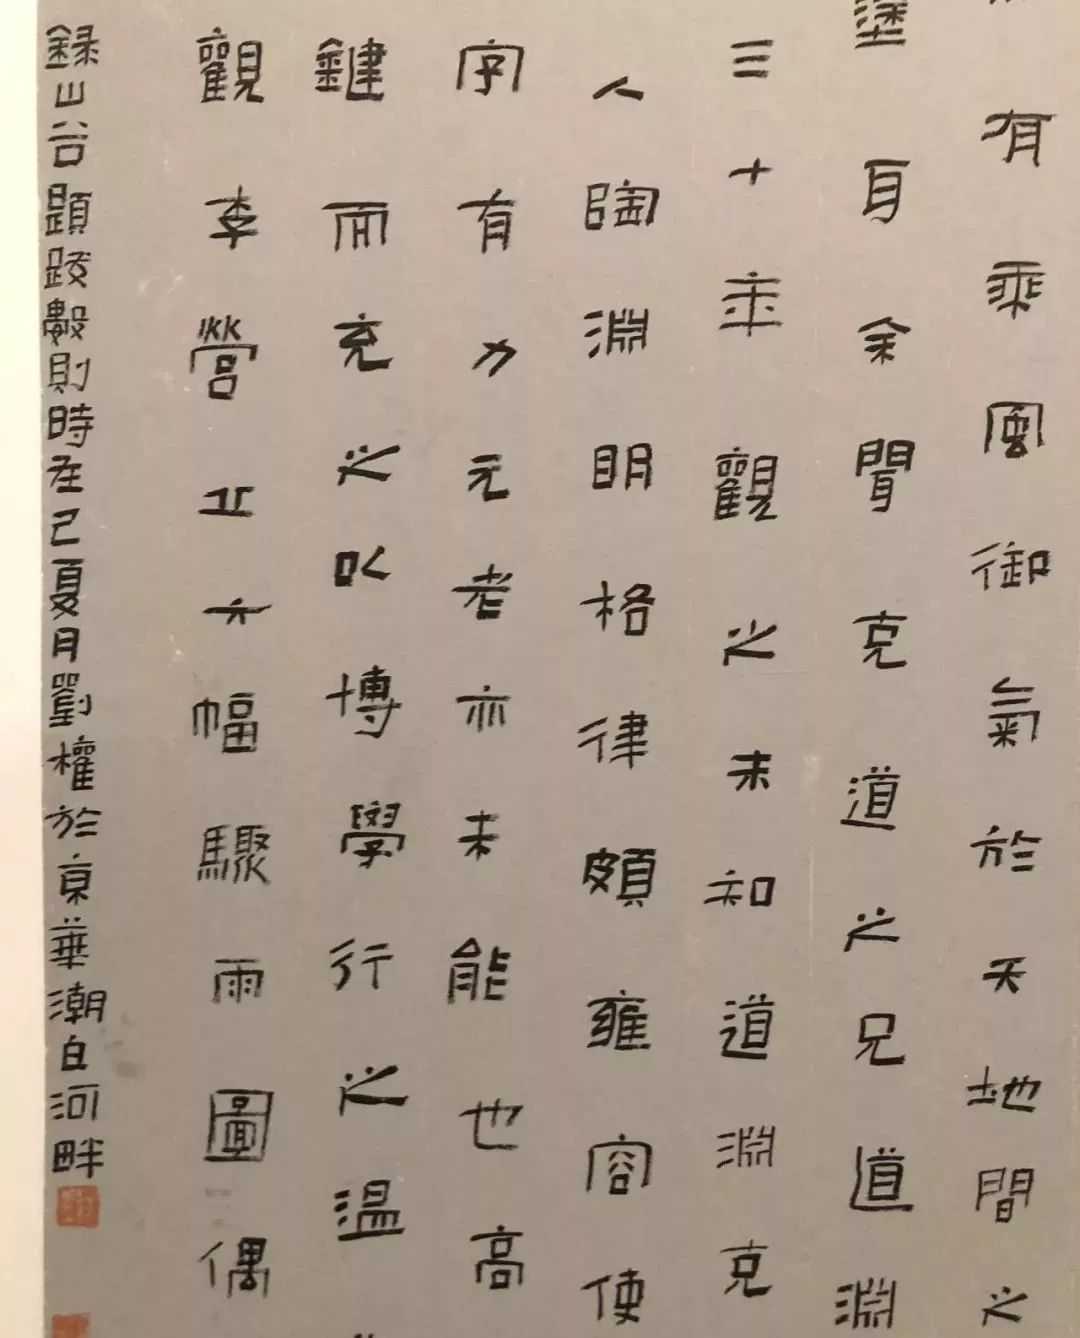 有乘風御氣於天地間之
塗耳余聞克道之兄道淵
三十年觀之未知道淵克
人陶淵明格律頗雍容使
字有力元老亦未能也高
鍵而充之以博學行之溫
觀李營丘六幅驟雨圖偶
錄山谷題跋數則時在己夏月劉權於京華潮白河畔